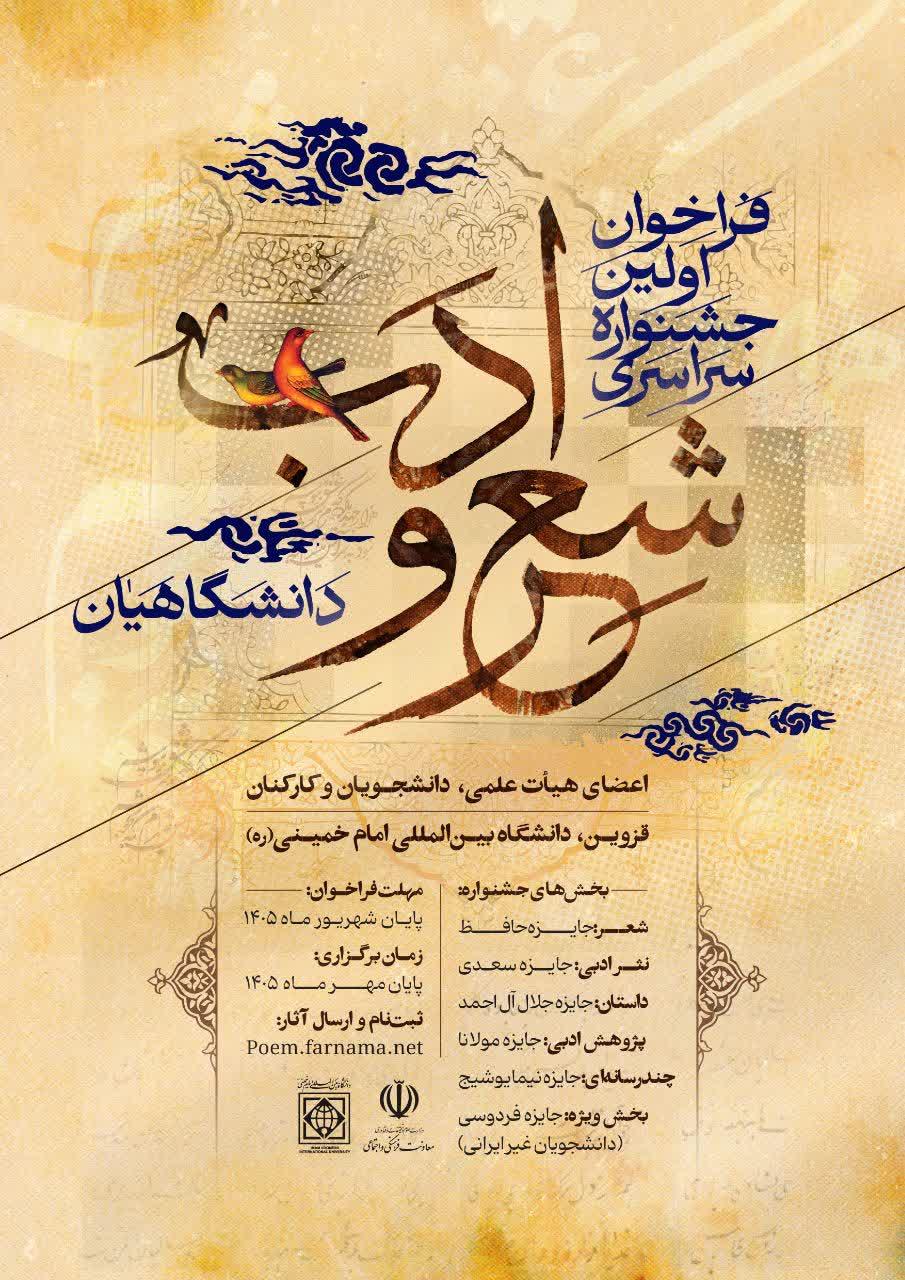 فراخوان
اولین
جشنواره
سراسری
شعر و ادب
دانشگاهیان
اعضای هیأت علمی، دانشجویان و کارکنان
قزوین، دانشگاه بین‌المللی امام خمینی(ره)
بخش‌های جشنواره:
شعر: جایزه حافظ
نثر ادبی: جایزه سعدی
داستان: جایزه جلال آل احمد
پژوهش ادبی: جایزه مولانا
چندرسانه‌ای: جایزه نیما یوشیج
بخش ویژه: جایزه فردوسی
(دانشجویان غیر ایرانی)
مهلت فراخوان:
پایان شهریور ماه ۱۴۰۵
زمان برگزاری:
پایان مهر ماه ۱۴۰۵
ثبت‌نام و ارسال آثار:
Poem.farnama.net
معاونت فرهنگی و اجتماعی
IMAM KHOMEINI
INTERNATIONAL UNIVERSITY